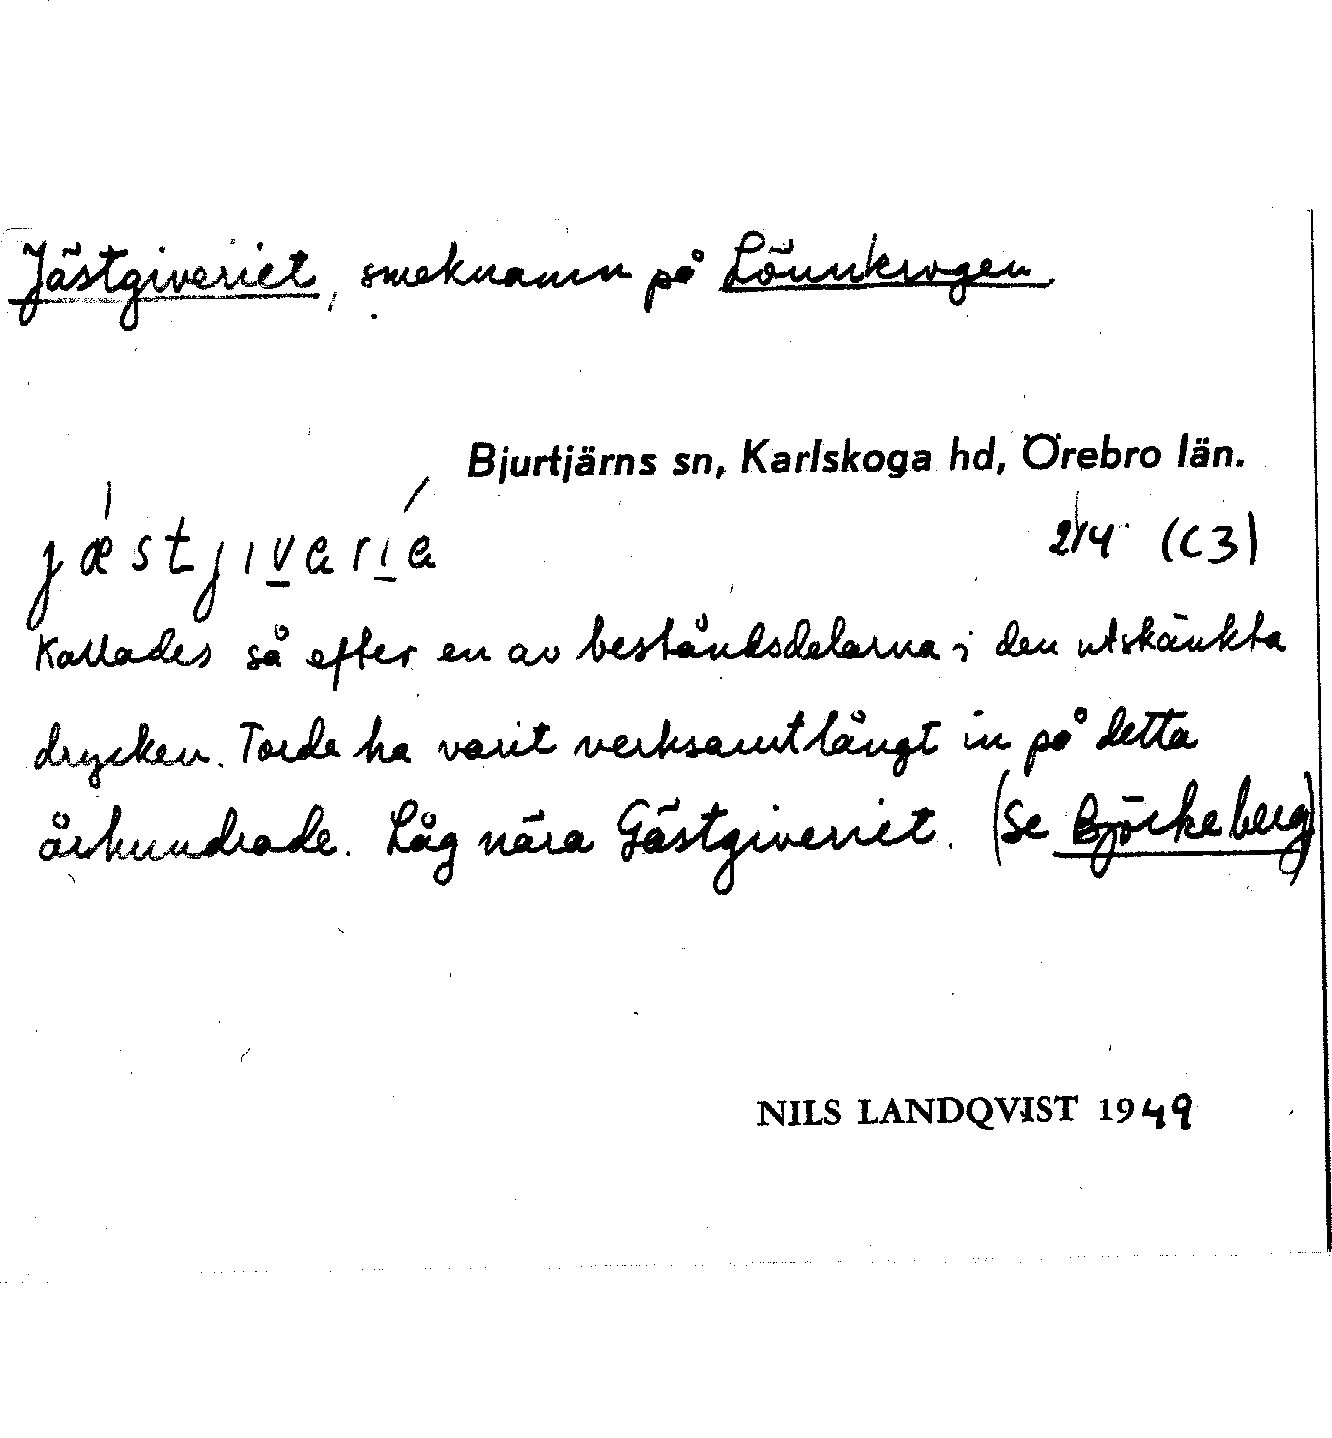 Jästgiveriet, smeknamn på Lönnkrogen.
Bjurtjärns sn, Karlskoga hd, Örebro län.
214 (C3)
Kallades så efter en av beståndsdelarna i den utskänkta
drycken. Torde ha varit verksamt långt in på detta
århundrade. Låg nära Gästgiveriet. (Se Björkeberg)
NILS LANDQVIST 1949